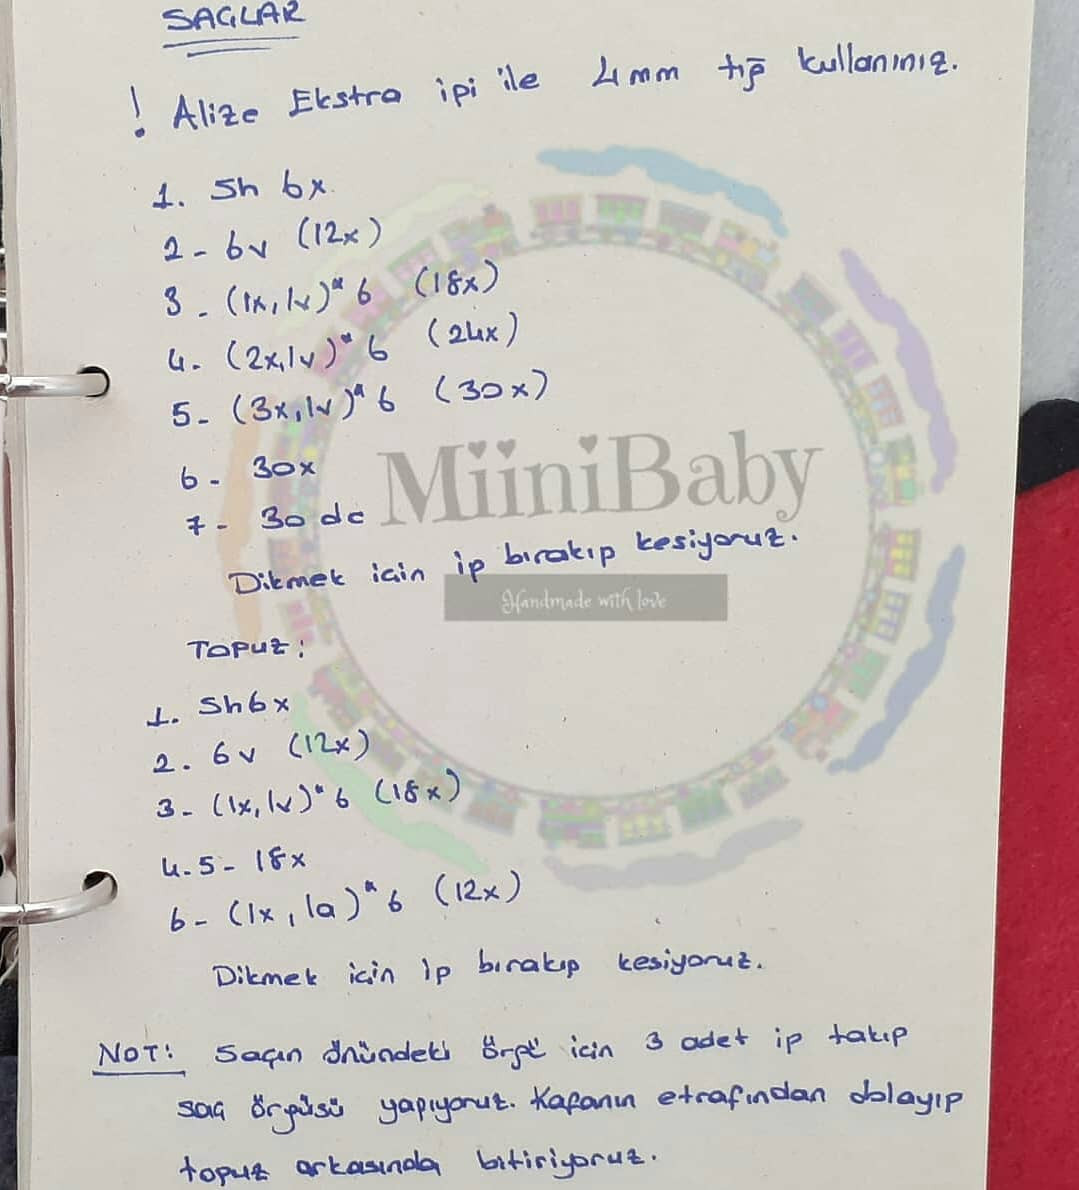 SAÇLAR
! Alize Ekstra ipi ile 4mm tığ kullanınız.
1. Sh 6x
2- 6v (12x)
3- (1x,1v)*6 (18x)
4. (2x,1v)*6 (24x)
5- (3x,1v)*6 (30x)
6- 30x
7- 30 dc
Dikmek için ip bırakıp kesiyoruz.
MiiniBaby
Handmade with love
TOPUZ:
1. Sh6x
2. 6v (12x)
3- (1x,1v)*6 (18x)
4.5- 18x
6- (1x,1a)*6 (12x)
Dikmek için ip bırakıp kesiyoruz.
NOT: Saçın önündeki örgü için 3 adet ip takıp
saç örgüsü yapıyoruz. Kafanın etrafından dolayıp
topuz arkasında bitiriyoruz.